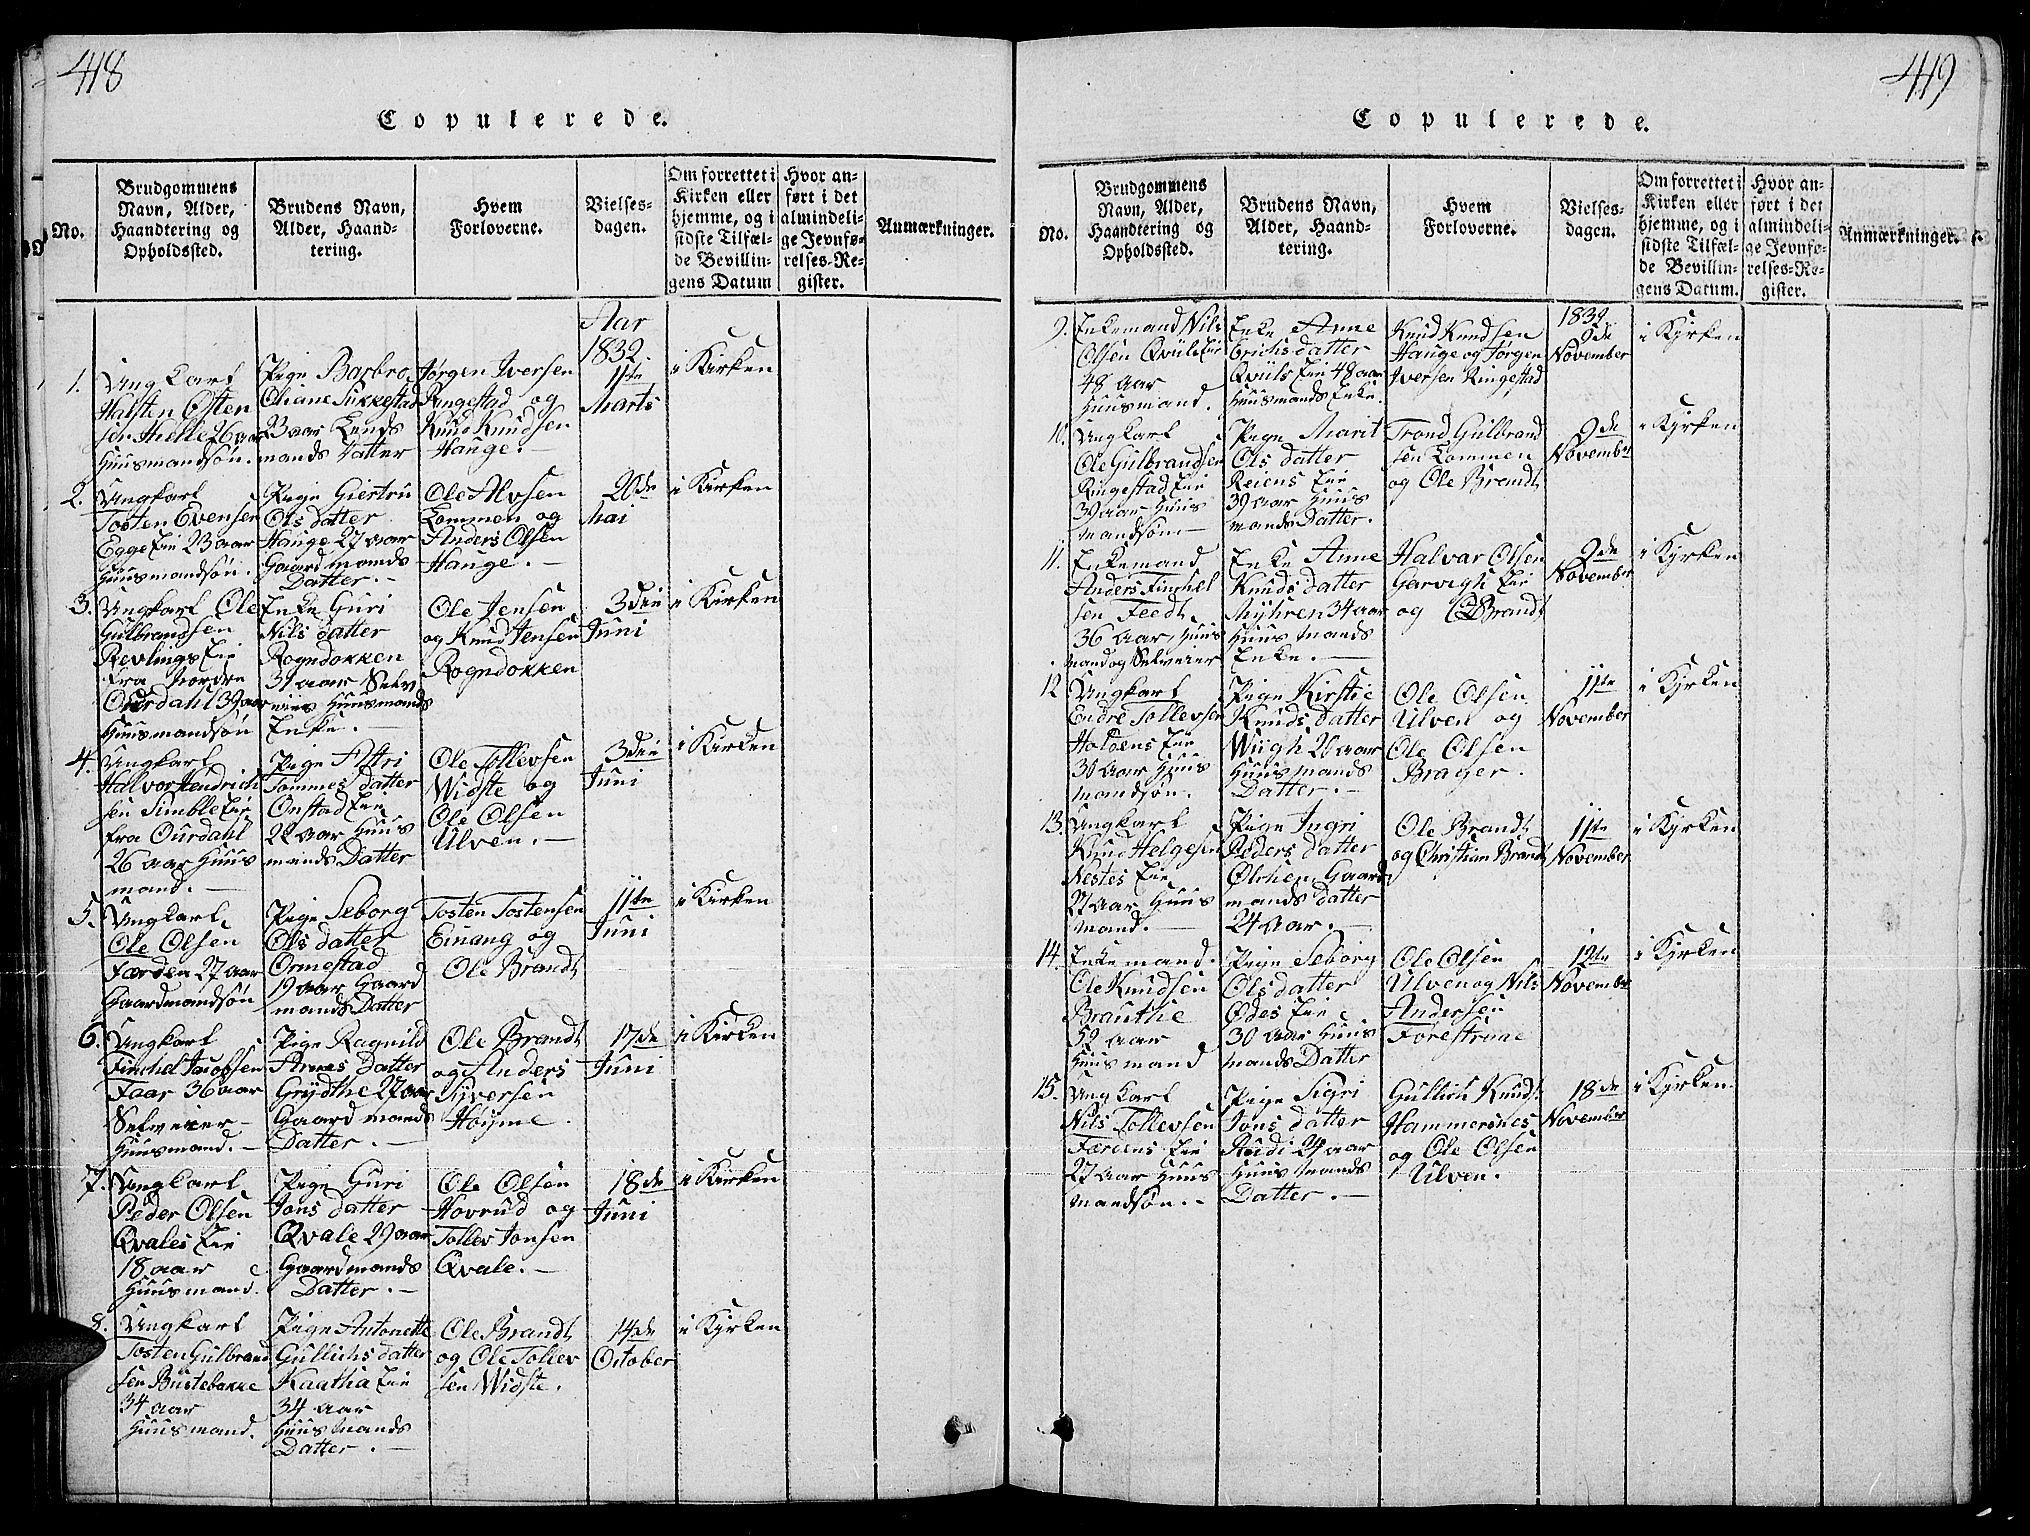 418
Copulerede.
No.
Brudgommens
Navn, Alder,
Haandtering og
Opholdssted.
Brudens Navn,
Alder, Haand-
tering.
Hvem
Forloverne.
Vielses-
dagen.
Om forrettet i
Kirken eller
hjemme, og i
sidste Tilfæl-
de Bevillin-
gens Datum
Hvor an-
ført i det
almindeli-
ge Jevnfø-
relses-Re-
gister.
Anmærkninger.
Aar
1832.
1.
Ungkarl
Halsten Østen
sen Helle 26 aar
Huusmandsøn.
Pige Barbro
Oliane Sukkestad
23 aar Lends
mands Datter
Jørgen Iversen
Ringestad og
Knud Knudsen
Hauge.
11te
Marts
i Kirken
2.
Ungkarl
Tosten Evensen
Egge Eie 23 aar
Huusmandsøn.
Pige Giertru
Ols datter
Hauge 27 aar
Gaardmands
Datter.
Ole Alvsen
Lommen og
Anders Olsen
Hauge.
20de
Mai
i Kirken
3.
Ungkarl Ole
Gulbrandsen
Revlings Eie
fra Nordre
Ourdahl 39 aar
Huusmandsøn
Enke Guri
Nils datter
Rogndokken
39 aar Selv
eiers Huusmands
Enke.
Ole Jensen
og Knud Jensen
Rogndokken
3die
Juni
i Kirken
4.
Ungkarl
Halvor Hendrich
sen Simble Eie
fra Ourdahl
26 aar Huus
mand.
Pige Astri
Tommes datter
Onstad Eie
22 aar Huus
mands Datter
Ole Tollevsen
Widste og
Ole Olsen
Ulven.
3die
Juni
i Kirken
5.
Ungkarl
Ole Olsen
Færden 27 aar
Gaardmandsøn
Pige Seborg
Ols datter
Ormestad
19 aar Gaard
mands Datter
Tosten Tostensen
Einang og
Ole Brandt
11te
Juni
i Kirken
6.
Ungkarl
Finchel Jacobsen
Faar 36 aar
Selveier
Huusmand.
Pige Ragnild
Arnes Datter
Grydthe 27 aar
Gaard mands
Datter.
Ole Brandt
og Anders
Syversen
Høyme.
17de
Juni
i Kirken
7.
Ungkarl
Peder Olsen
Qvales Eie
18 aar
Huusmand.
Pige Guri
Jons datter
Qvale 29 aar
Gaardmands
Datter.
Ole Olsen
Hovrud og
Tollev Jonsen
Qvale.
18de
Juni
i Kirken
8.
Ungkarl
Tosten Gulbrand
sen Bustebakke
34 aar
Huusmand.
Pige Antonette
Gullichs datter
Kaatha Eie
34 aar
Huus Mands
Datter.
Ole Brandt
og Ole Tollev
sen Widste.
14de
October
i Kyrken
419
Copulerede.
No.
Brudgommens
Navn, Alder,
Haandtering og
Opholdssted.
Brudens Navn,
Alder, Haand-
tering.
Hvem
Forloverne.
Vielses-
dagen.
Om forrettet i
Kirken eller
hjemme, og i
sidste Tilfæl-
de Bevillin-
gens Datum.
Hvor an-
ført i det
almindeli-
ge Jevnfø-
relses-Re-
gister.
Anmærkninger.
1832
9.
Enkemand Nils
Olsen Qviils Eie
48 aar
Huusmand.
Enke Anne
Erichsdatter
Qviils Eie 48 aar
Huusmands Enke.
Knud Knudsen
Hauge og Jørgen
Iversen Ringestad
9de
November
i Kyrken
10.
Ungkarl
Ole Gulbrandsen
Ringestad Eie
39 aar Huus
mandsøn
Pige Marit
Ols datter
Reiens Eie
39 aar Huus
mands Datter.
Trond Gulbrand
sen Lommen
og Ole Brandt
9de
November
i Kyrken
11.
Enkemand
Anders Finchel
sen Feedt
36 aar, Huus
mand og Selveier
Enke Anne
Knuds datter
Myhren 34 aar
Huus Mands
Enke.
Halvar Olsen
Garvigh Eie
og O Brandt
9de
November
i Kyrken
12
Ungkarl
Endre Tollevsen
Holdens Eie
30 aar Huus
mandsøn.
Pige Kirstie
Knuds datter
Wiigh 26 aar
Huus mands
Datter.
Ole Olsen
Ulven og
Ole Olsen
Brager.
11te
November
i Kyrken
13.
Ungkarl
Knud Helgesen
Nestes Eie
27 aar Huus
mand.
Pige Ingri
Peders datter
Ølrhen Gaard
mands datter
24 aar.
Ole Brandt
og Christian Brandt
11te
November
i Kyrken
14.
Enkemand.
Ole Knudsen
Brauthe
59 aar
Huusmand
Pige Seborg
Ols datter
Ødes Eie
30 aar Huus
mands Datter
Ole Olsen
Ulven og Nils
Andersen
Forestrane
12te
November
i Kyrken
15.
Ungkarl
Nils Tollevsen
Færdens Eie
27 aar Huus
mandsøn.
Pige Sigri
Jons datter
Rudi 24 aar
Huus mands
Datter.
Gullich Knuds.
Hammersnes
og Ole Olsen
Ulven.
18de
November
i Kyrken